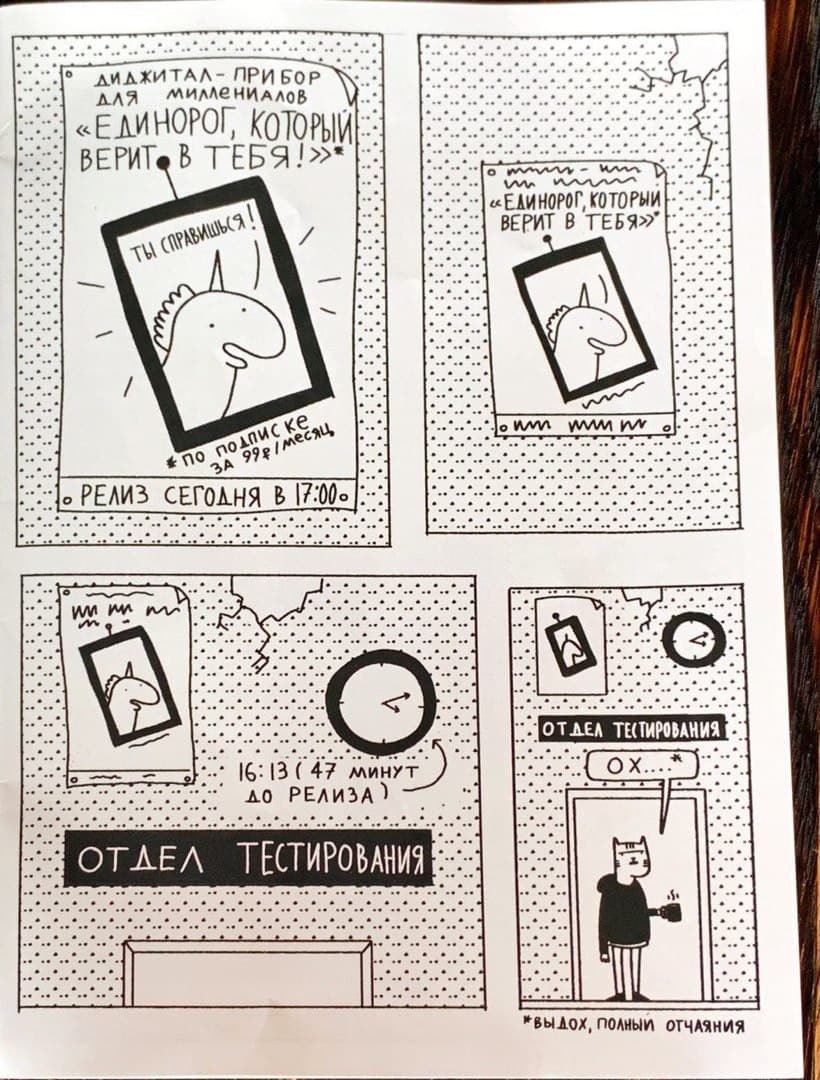 ДИДЖИТАЛ-ПРИБОР
ДЛЯ МИЛЛЕНИАЛОВ
«ЕДИНОРОГ, КОТОРЫЙ
ВЕРИТ В ТЕБЯ!»*
ТЫ СПРАВИШЬСЯ!
*ПО ПОДПИСКЕ
ЗА 99₽/МЕСЯЦ
РЕЛИЗ СЕГОДНЯ В 17:00
«ЕДИНОРОГ, КОТОРЫЙ
ВЕРИТ В ТЕБЯ»*
16:13 (47 МИНУТ
ДО РЕЛИЗА)
ОТДЕЛ ТЕСТИРОВАНИЯ
ОТДЕЛ ТЕСТИРОВАНИЯ
ОХ...*
*ВЫДОХ, ПОЛНЫЙ ОТЧАЯНИЯ